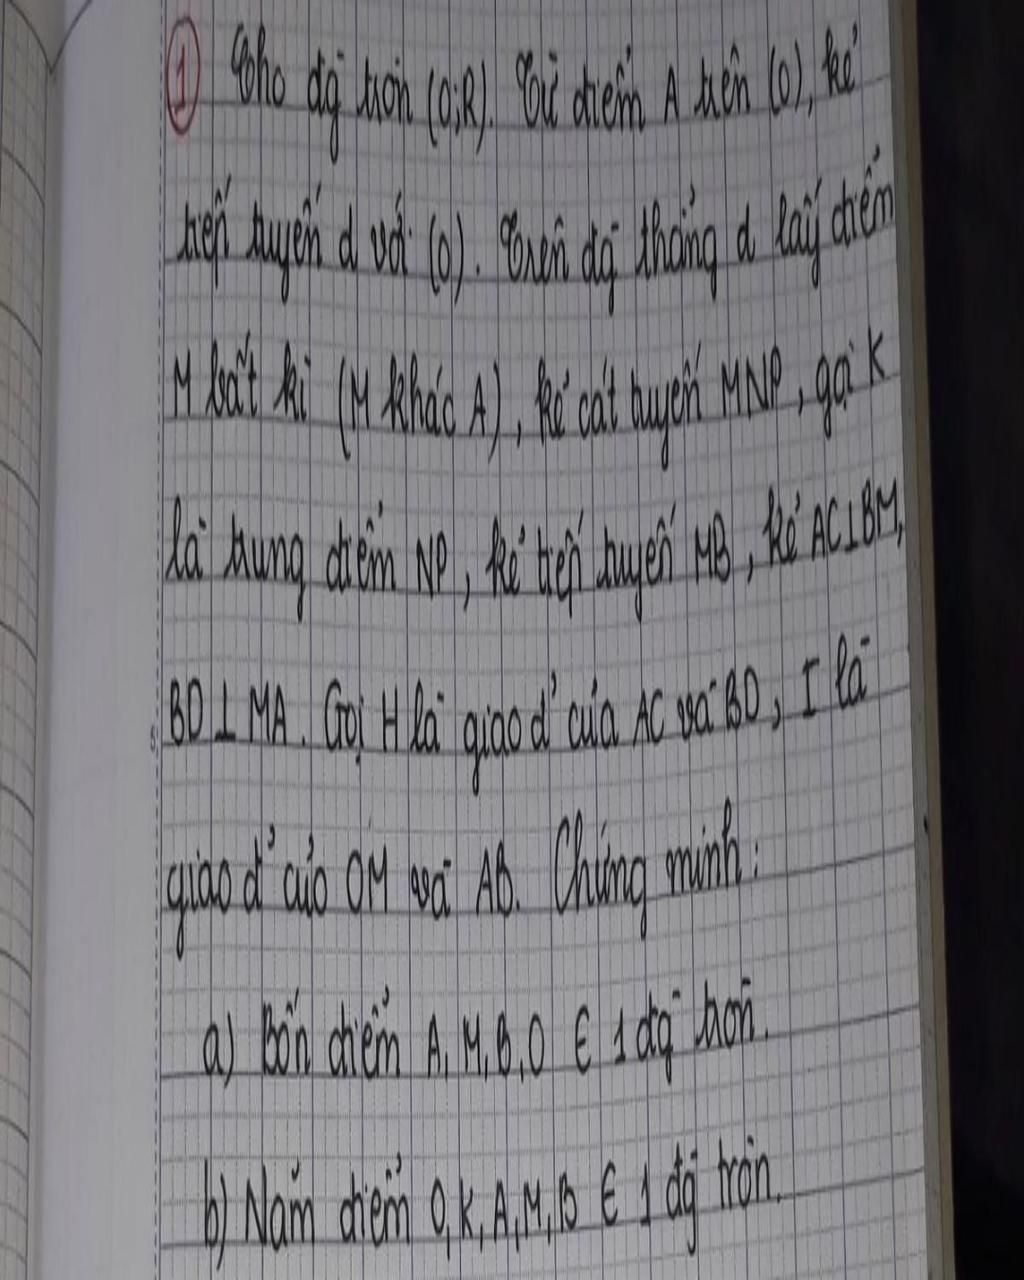 ① Cho đg tròn (O;R). Từ điểm A trên (O), kẻ
tiếp tuyến d với (O). Trên đg thẳng d lấy điểm
M bất kì (M khác A), kẻ cát tuyến MNP, gọi K
là trung điểm NP, kẻ tiếp tuyến MB, kẻ AC⊥BM,
BD⊥MA. Gọi H là giao đ' của AC và BD, I là
giao đ' của OM và AB. Chứng minh:
a) Bốn điểm A, M, B, O ∈ 1 đg tròn.
b) Năm điểm O, K, A, M, B ∈ 1 đg tròn.